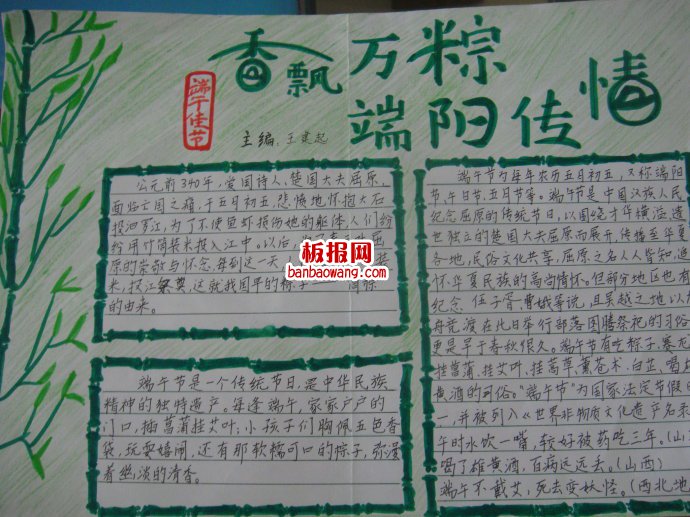 香飘万粽
端阳传情
端午佳节
主编:王昊起
公元前340年,爱国诗人、楚国大夫屈原,
面临亡国之痛,于五月初五,悲愤地怀抱大石
投汨罗江,为了不使鱼虾损伤她的躯体,人们纷
纷用竹筒装米投入江中。以后,
原的崇敬与怀念,每到这一天
米,投江祭奠,这就我国早的粽子
的由来。
板报网
banbaowang.com
端午节是一个传统节日,是中华民族
精神的独特遗产。每逢端午,家家户户的
门口,插菖蒲挂艾叶,小孩子们胸佩五色香
袋,玩耍嬉闹,还有那软糯可口的粽子,弥漫
着幽淡的清香。
端午节为每年农历五月初五,又称端阳
节、午日节、五月节等。端午节是中国汉族人民
纪念屈原的传统节日,以围绕才华横溢、遗
世独立的楚国大夫屈原而展开,传播至华夏
各地,民俗文化共享,屈原之名人人皆知,追
怀华夏民族的高尚情怀。但部分地区也有
纪念 伍子胥、曹娥等说,且吴越之地以
舟竞渡在此日举行部落图腾祭祀的习俗
更是早于春秋很久。端午节有吃粽子,赛龙
挂菖蒲,挂艾叶,挂蒿草,薰苍术、白芷,喝
黄酒的习俗。“端午节”为国家法定节假
一,并被列入《世界非物质文化遗产名
午时水饮一嘴,较好被药吃三年。(山
喝了雄黄酒,百病远远丢。(山西)
端午不戴艾,死去变妖怪。(西北地